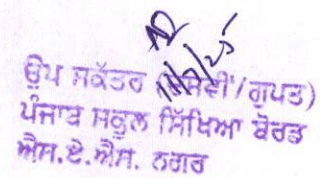 ਉਪ ਸਕੱਤਰ (ਦਸਵੀਂ/ਗੁਪਤ)
ਪੰਜਾਬ ਸਕੂਲ ਸਿੱਖਿਆ ਬੋਰਡ
ਐਸ.ਏ.ਐਸ. ਨਗਰ